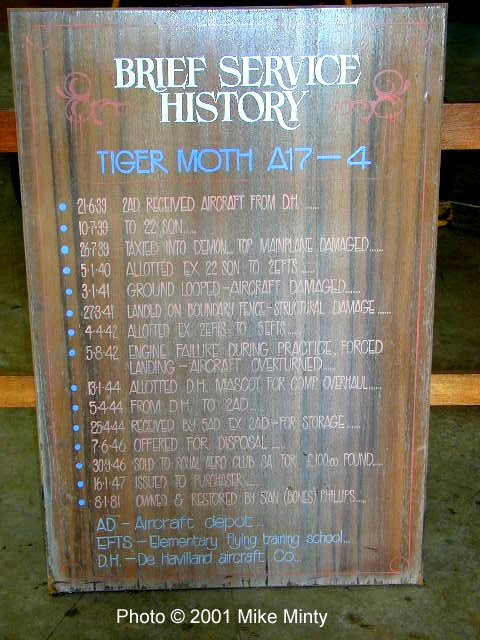 BRIEF SERVICE
HISTORY
TIGER MOTH A17-4
21-6-39 2AD RECEIVED AIRCRAFT FROM D.H. ......
10-7-39 TO 22 SQN.....
26-7-39 TAXIED INTO DEMON... TOP MAINPLANE DAMAGED......
5-1-40 ALLOTTED EX 22 SQN TO 2EFTS.....
3-1-41 GROUND LOOPED - AIRCRAFT DAMAGED.....
27-3-41 LANDED ON BOUNDARY FENCE - STRUCTURAL DAMAGE......
4-4-42 ALLOTTED EX 2EFTS TO 5EFTS....
5-8-42 ENGINE FAILURE DURING PRACTICE, FORCED
LANDING - AIRCRAFT OVERTURNED.....
13-1-44 ALLOTTED D.H. MASCOT FOR COMP. OVERHAUL......
5-4-44 FROM D.H. TO 2AD.....
25-4-44 RECEIVED BY 5AD EX 2AD - FOR STORAGE.....
7-6-46 OFFERED FOR DISPOSAL.....
30-9-46 SOLD TO ROYAL AERO CLUB SA FOR £100.00 POUND.....
16-1-47 ISSUED TO PURCHASER......
8-1-81 OWNED & RESTORED BY STAN (BONES) PHILLIPS.....
AD - Aircraft depot...
EFTS - Elementary flying training school...
D.H. - De Havilland aircraft Co...
Photo © 2001 Mike Minty